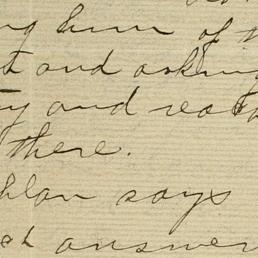 ng him of
t and asking
ty and rea
there.
hlan says
answer